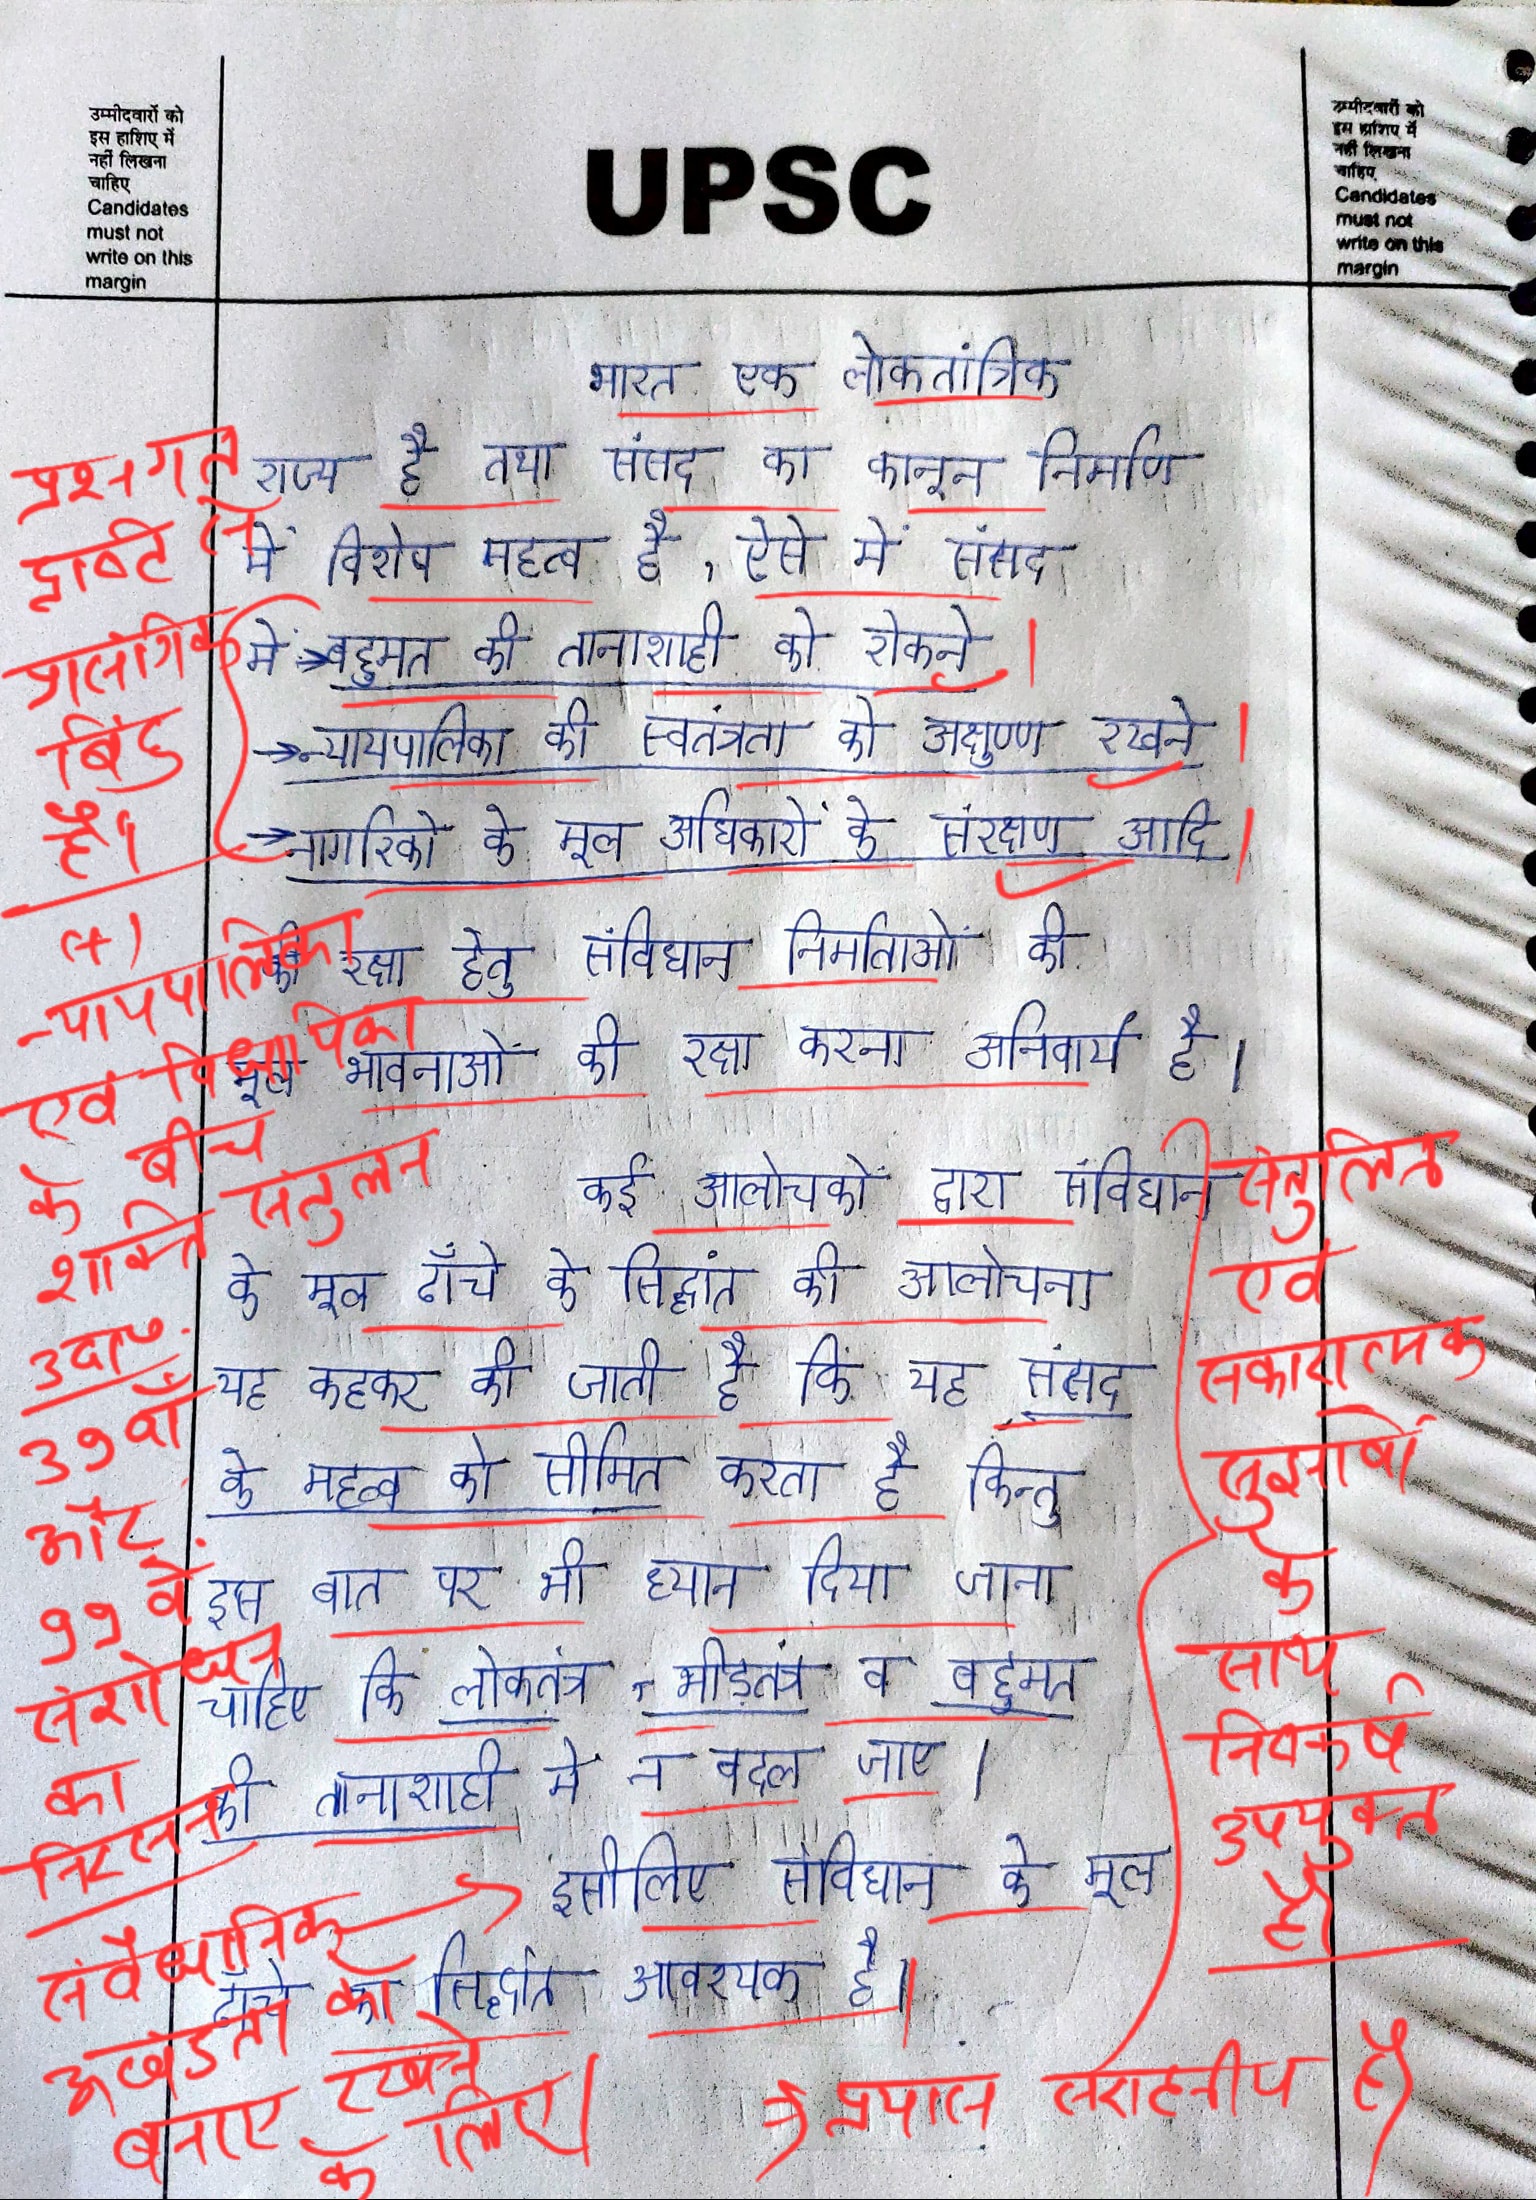 उम्मीदवारों को
इस हाशिए में
नहीं लिखना
चाहिए
Candidates
must not
write on this
margin
UPSC
उम्मीदवारों को
इस हाशिए में
नहीं लिखना
चाहिए
Candidates
must not
write on this
margin
भारत एक लोकतांत्रिक
राज्य है तथा संसद का कानून निर्माण
में विशेष महत्व है, ऐसे में संसद
में → बहुमत की तानाशाही को रोकने
→ न्यायपालिका की स्वतंत्रता को अक्षुण्ण रखने
→ नागरिको के मूल अधिकारों के संरक्षण आदि
की रक्षा हेतु संविधान निर्माताओं की
मूल भावनाओं की रक्षा करना अनिवार्य है।
कई आलोचकों द्वारा संविधान
के मूल ढाँचे के सिद्धांत की आलोचना
यह कहकर की जाती है कि यह संसद
के महत्व को सीमित करता है किन्तु
इस बात पर भी ध्यान दिया जाना
चाहिए कि लोकतंत्र, भीड़तंत्र व बहुमत
की तानाशाही में न बदल जाए।
इसीलिए संविधान के मूल
ढाँचे का सिद्धांत आवश्यक है।
प्रश्नगत
दृष्टि से
प्रासंगिक
बिंदु
है।
(+)
न्यायपालिका
एवं विधायिका
के बीच
शक्ति संतुलन
उदा०
39वाँ
और
99वें
संशोधन
का
निरसन
संवैधानिक
अखंडता को
बनाए रखने
के लिए।
संतुलित
एवं
सकारात्मक
सुझावों
के
साथ
निष्कर्ष
उपयुक्त
है।
→ प्रयास सराहनीय है।